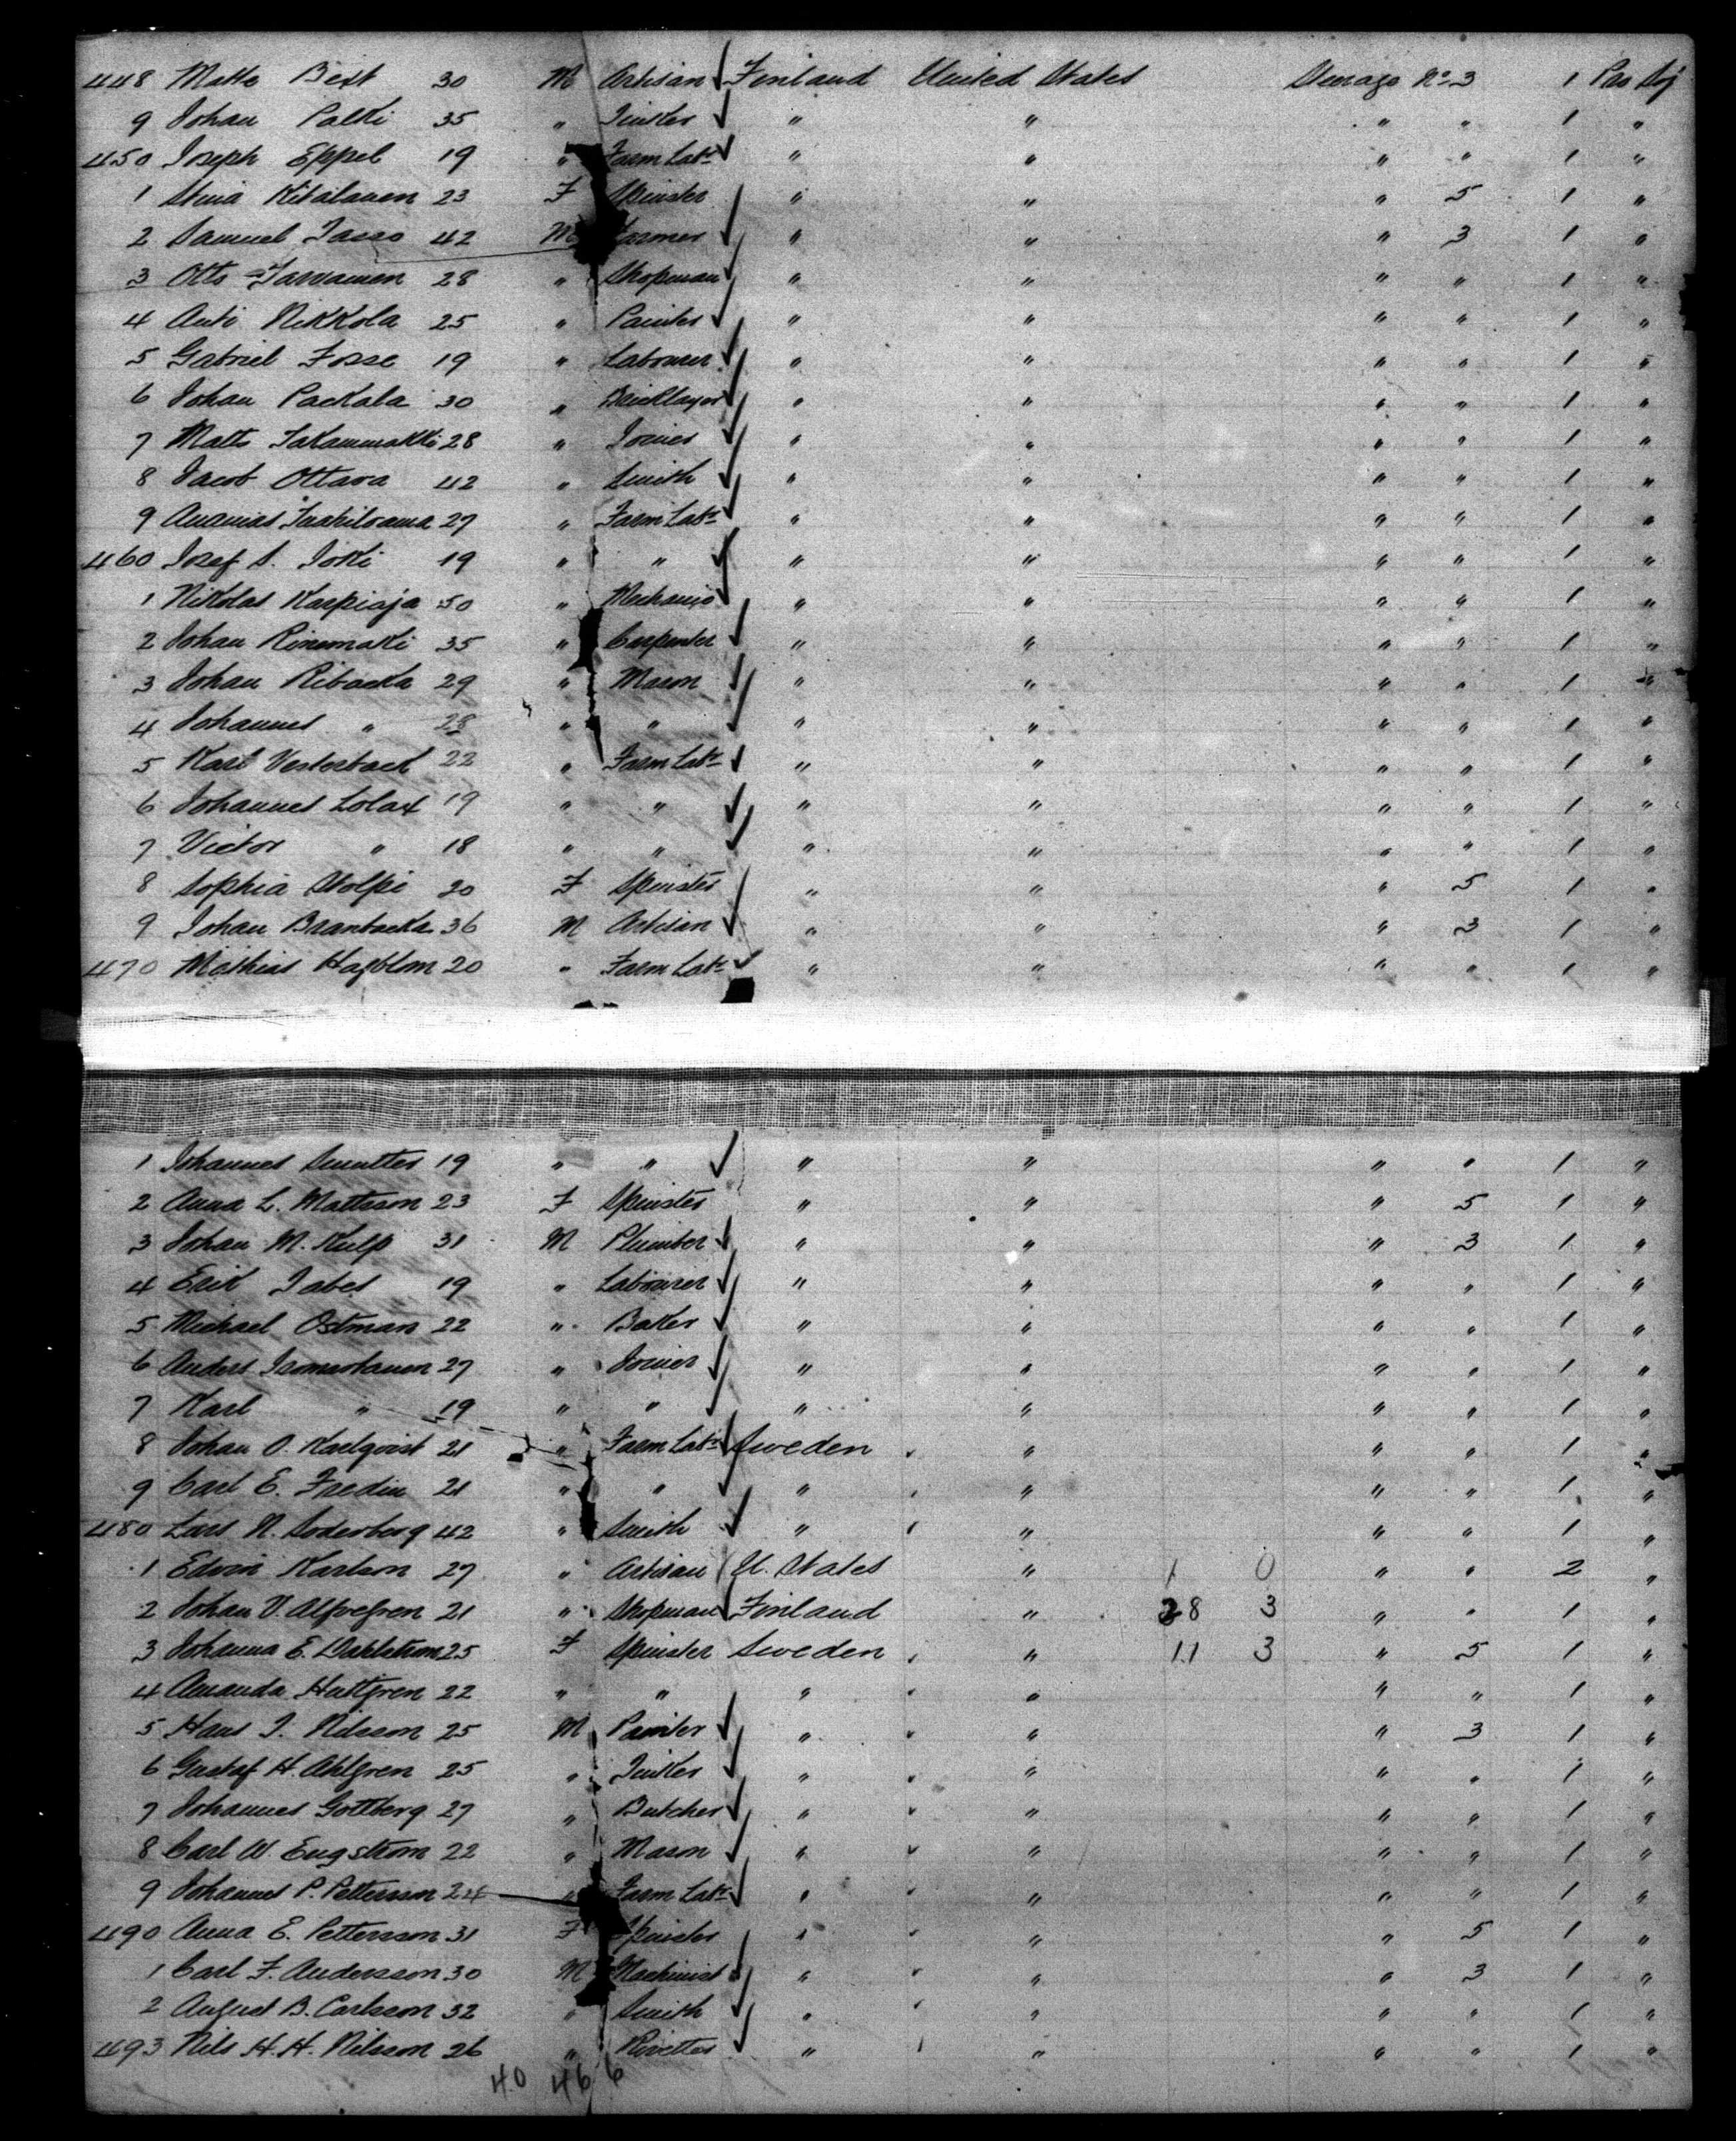 448 Matts Bext 30 M Artisan Finland United States Steerage No 3 1 Pro Soj
9 Johan Palki 35 " Tinker " " " " 1 "
450 Joseph Eppel 19 " Farm Labr " " " " 1 "
1 Stina Kitalanen 23 F Spinster " " " 5 1 "
2 Samuel Jasso 42 M Farmer " " " 3 1 "
3 Otto Tarvainen 28 " Shopman " " " " 1 "
4 Anti Nikkola 25 " Painter " " " " 1 "
5 Gabriel Fosse 19 " Labourer " " " " 1 "
6 Johan Packala 30 " Bricklayer " " " " 1 "
7 Matts 28 " Joiner " " " " 1 "
8 Jacob Ottava 42 " Smith " " " " 1 "
9 Ananias 27 " Farm Labr " " " " 1 "
460 Josef S. Joki 19 " " " " " " 1 "
1 Nikolas Karpiaja 50 " Mechanic " " " " 1 "
2 Johan Rinnmaki 35 " Carpenter " " " " 1 "
3 Johan Ribacka 29 " Mason " " " " 1 "
4 Johannes " 28 " " " " " " 1 "
5 Karl Vesterback 22 " Farm Labr " " " " 1 "
6 Johannes Lolax 19 " " " " " " 1 "
7 Victor " 18 " " " " " " 1 "
8 Sophia Stolpe 20 F Spinster " " " 5 1 "
9 Johan Branbacka 36 M Artisan " " " 3 1 "
470 Mathias Hagblom 20 " Farm Labr " " " " 1 "
1 Johannes Smutter 19 " " " " " " 1 "
2 Anna L. Mattsson 23 F Spinster " " " 5 1 "
3 Johan M. Kulp 31 M Plumber " " " 3 1 "
4 Erik Jabel 19 " Labourer " " " " 1 "
5 Michael Ostman 22 " Baker " " " " 1 "
6 Anders 27 " Joiner " " " " 1 "
7 Karl " 19 " " " " " " 1 "
8 Johan O. Karlqvist 21 " Farm Labr Sweden " " " 1 "
9 Carl E. Fredin 21 " " " " " " 1 "
480 Lars N. Soderberg 42 " Smith " " " " 1 "
1 Edvin Karlson 27 " Artisan U. States " 1 0 " " 2 "
2 Johan V. Alfvegren 21 " Shopman Finland " 28 3 " " 1 "
3 Johanna E. Dahlstrom 25 F Spinster Sweden " 11 3 " 5 1 "
4 Amanda Hultgren 22 " " " " " " 1 "
5 Hans J. Nilsson 25 M Painter " " " 3 1 "
6 Gustaf H. Ahlgren 25 " Tinker " " " " 1 "
7 Johannes Gottberg 27 " Butcher " " " " 1 "
8 Carl W. Engstrom 22 " Mason " " " " 1 "
9 Johannes P. Pettersson 24 " Farm Labr " " " " 1 "
490 Anna E. Pettersson 31 F Spinster " " " 5 1 "
1 Carl F. Andersson 30 M Machinist " " " 3 1 "
2 August B. Carlsson 32 " Smith " " " " 1 "
493 Nils H. H. Nilsson 26 " Rivetter " " " " 1 "
40 466